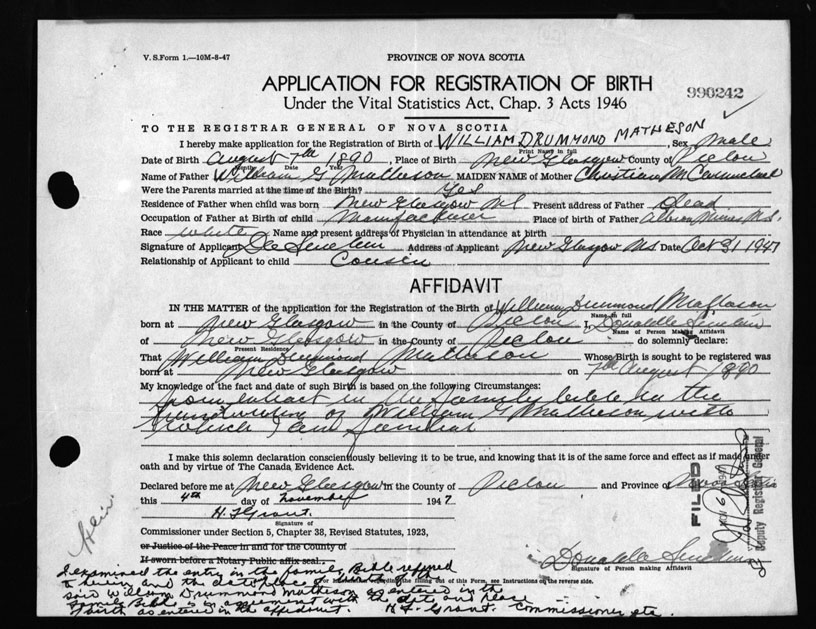 V. S. Form 1.—10M-8-47
PROVINCE OF NOVA SCOTIA
APPLICATION FOR REGISTRATION OF BIRTH
990242
Under the Vital Statistics Act, Chap. 3 Acts 1946
TO THE REGISTRAR GENERAL OF NOVA SCOTIA
I hereby make application for the Registration of Birth of WILLIAM DRUMMOND MATHESON, Sex Male
Print Name in full
Date of Birth August 7th 1890, Place of Birth New Glasgow County of Pictou
Month Day Year
Name of Father William G Matheson MAIDEN NAME of Mother Christian McCarmichael
Were the Parents married at the time of the Birth? Yes
Residence of Father when child was born New Glasgow NS Present address of Father Dead
Occupation of Father at Birth of child Manufacturer Place of birth of Father Albion Mines N.S.
Race White Name and present address of Physician in attendance at birth
Signature of Applicant Address of Applicant New Glasgow NS Date Oct 31 1947
Relationship of Applicant to child Cousin
AFFIDAVIT
IN THE MATTER of the application for the Registration of the Birth of William Drummond Matheson
Name in full
born at New Glasgow in the County of Pictou I, Donalella
Name of Person Making Affidavit
of New Glasgow in the County of Pictou do solemnly declare:
Present Residence
That William Drummond Matheson Whose Birth is sought to be registered was
born at New Glasgow on 7th August 1890
My knowledge of the fact and date of such Birth is based on the following Circumstances:
from extract in the family bible in the
handwriting of William G Matheson with
which I am familiar
I make this solemn declaration conscientiously believing it to be true, and knowing that it is of the same force and effect as if made under
oath and by virtue of The Canada Evidence Act.
Declared before me at New Glasgow in the County of Pictou and Province of Nova Scotia
this 4th day of November 1947
H. F Grant.
Signature of
Commissioner under Section 5, Chapter 38, Revised Statutes, 1923,
or Justice of the Peace in and for the County of
If sworn before a Notary Public affix seal.
Donalella
Signature of Person making Affidavit
For information regarding the filling out of this Form, see Instructions on the reverse side.
FILED
NOV 6 194
Deputy Registrar General
I examined the entry in the family Bible referred
to herein and the date & place of birth of
said William Drummond Matheson as entered in the
family Bible is in agreement with the date and place
of birth as entered in the affidavit. H. F. Grant. Commissioner etc.